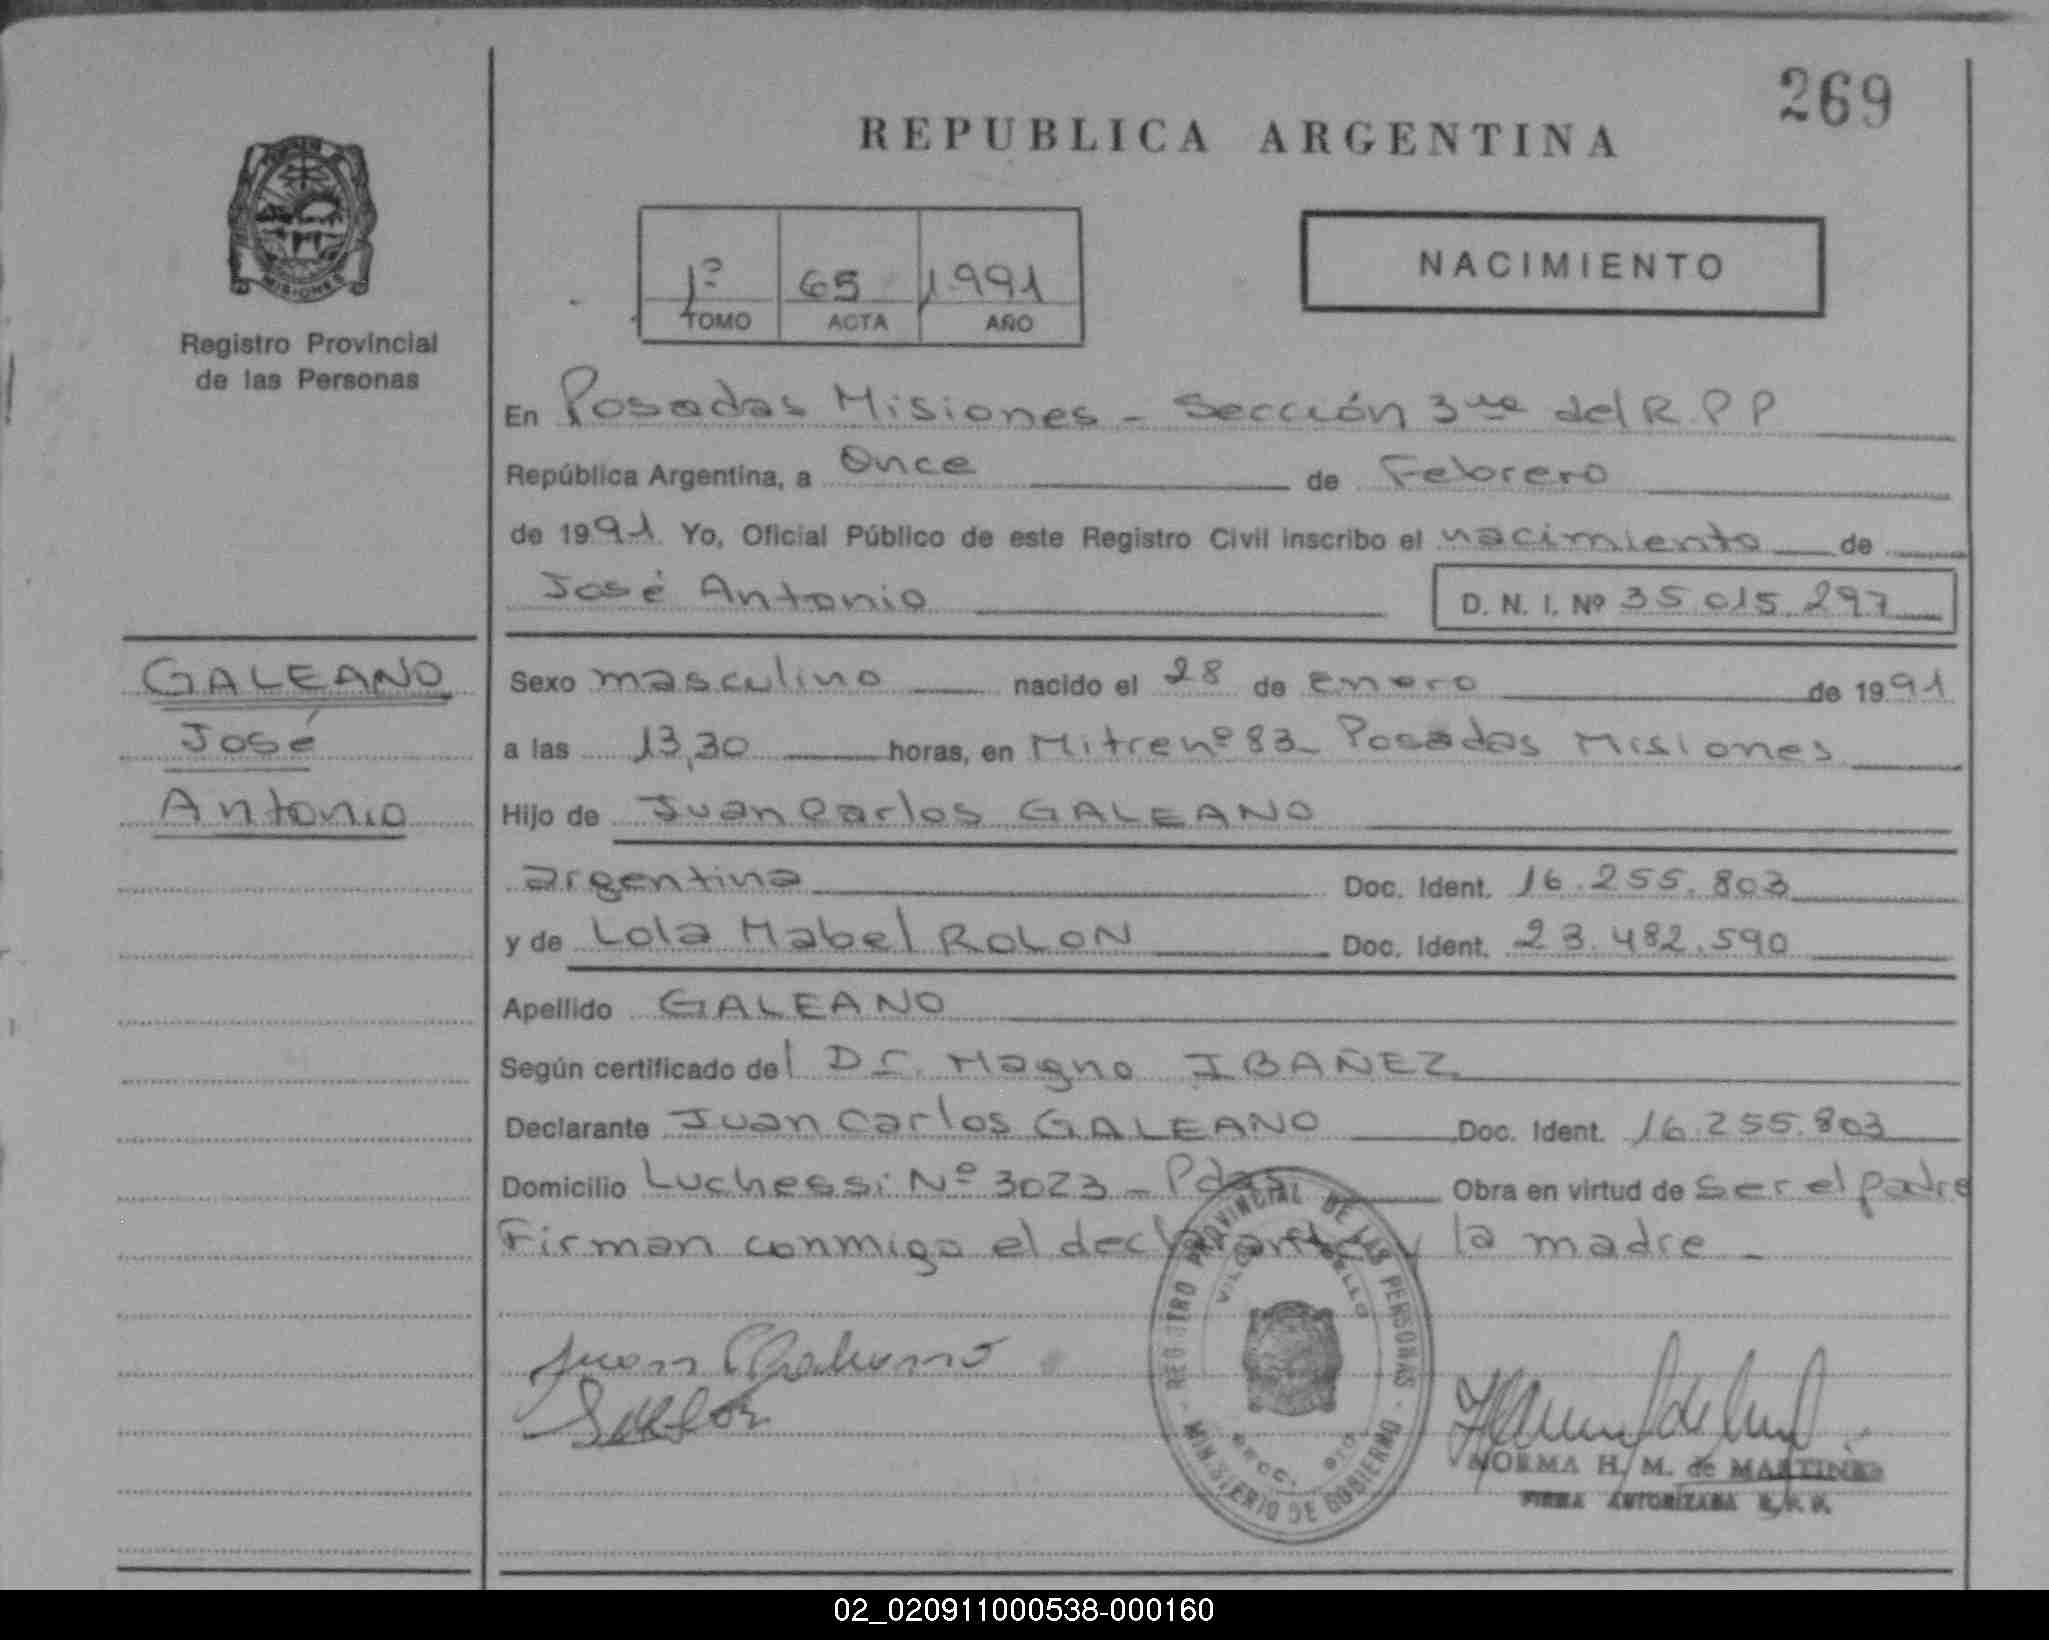 269
REPUBLICA ARGENTINA
MISIONES
Registro Provincial
de las Personas
1º 65 1991
TOMO ACTA AÑO
NACIMIENTO
En Posadas Misiones - Sección 3ra del R.P.P
República Argentina, a Once de Febrero
de 1991 Yo, Oficial Público de este Registro Civil inscribo el nacimiento de
José Antonio D. N. I. Nº 35.015.297
GALEANO
José
Antonio
Sexo masculino nacido el 28 de Enero de 1991
a las 13,30 horas, en Mitre nº 83 Posadas Misiones
Hijo de Juan Carlos GALEANO
argentina Doc. Ident. 16.255.803
y de Lola Mabel ROLON Doc. Ident. 23.482.590
Apellido GALEANO
Según certificado del Dr. Magno IBAÑEZ
Declarante Juan Carlos GALEANO Doc. Ident. 16.255.803
Domicilio Luchessi Nº 3023 - Pdas Obra en virtud de ser el padre
Firman conmigo el declarante y la madre -
REGISTRO PROVINCIAL DE LAS PERSONAS
MINISTERIO DE GOBIERNO
NORMA H. M. de MARTINEZ
FIRMA AUTORIZADA R. P. P.
02_020911000538-000160